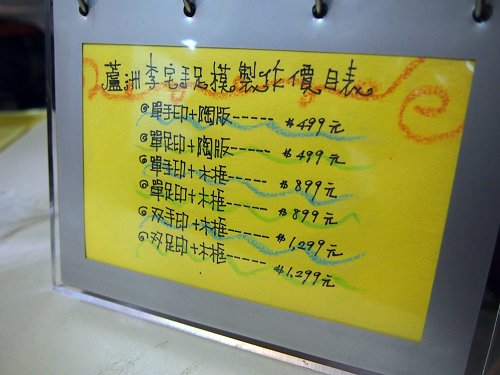 蘆洲李宅手足模製作價目表
單手印+陶版------$499元
單足印+陶版------$499元
單手印+木框------$899元
單足印+木框------$899元
双手印+木框------$1,299元
双足印+木框------$1,299元